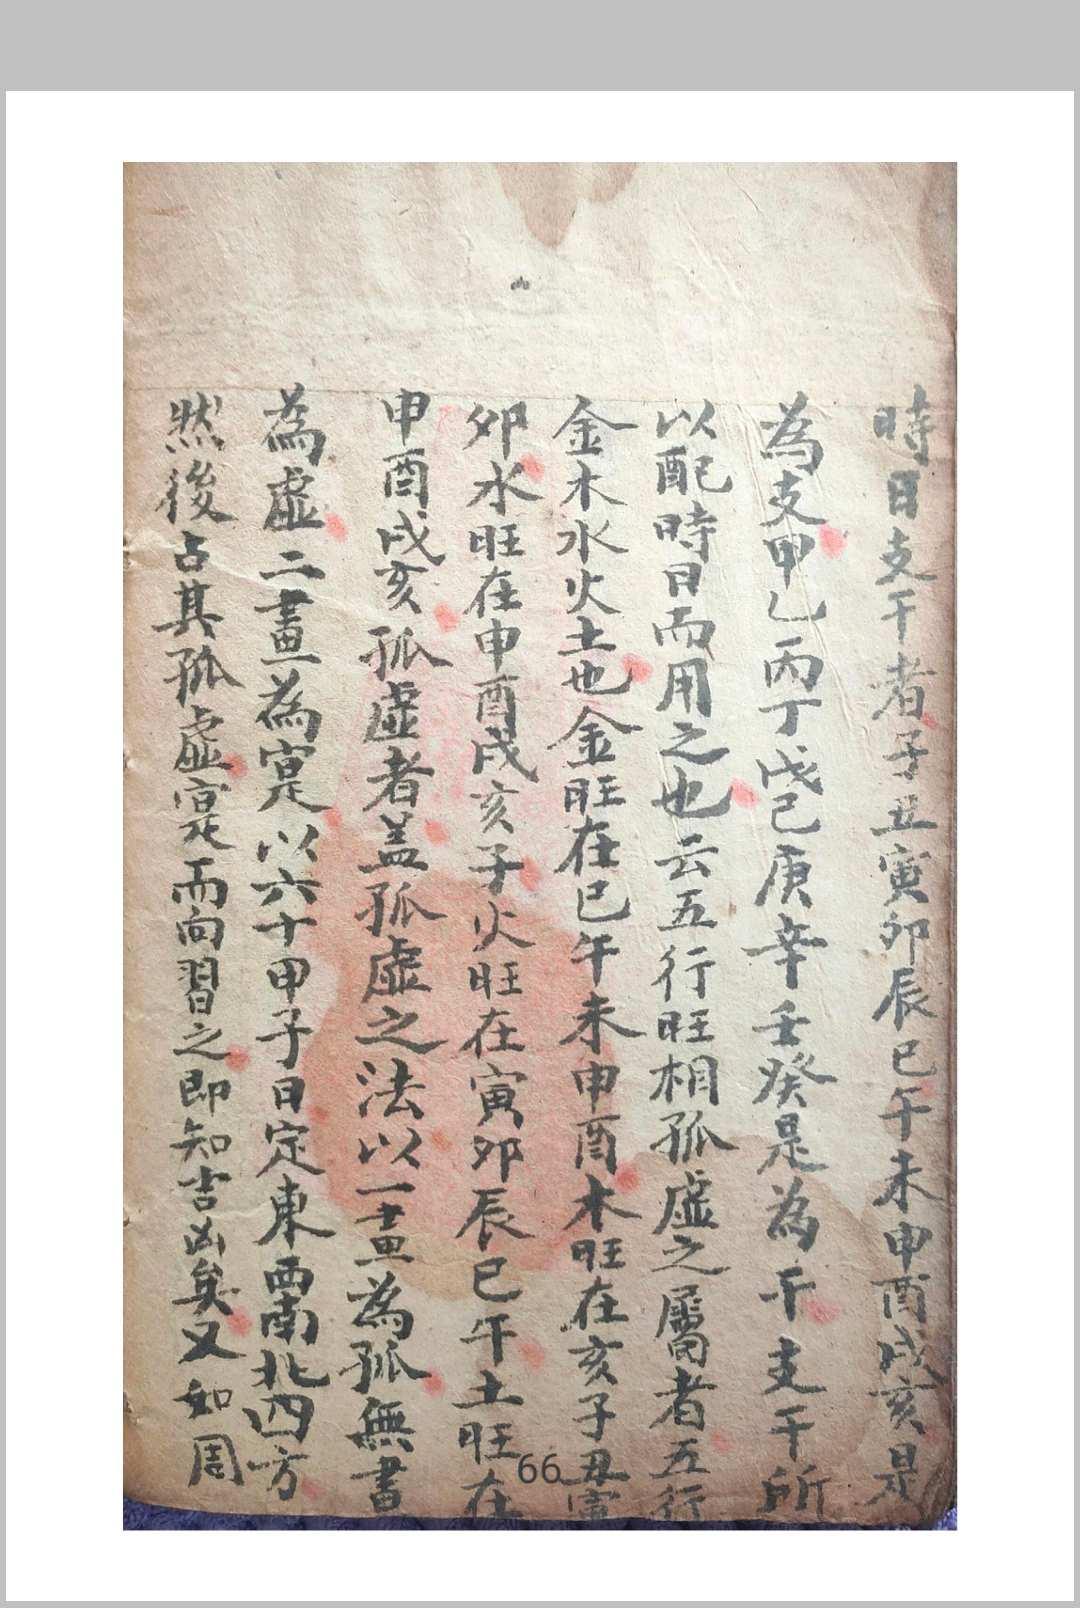 時日支干者子丑寅卯辰巳午未申酉戌亥是
為支甲乙丙丁戊己庚辛壬癸是為干支干所
以配時日而用之也云五行旺相孤虛之屬者五行
金木水火土也金旺在巳午未申酉木旺在亥子丑寅
卯水旺在申酉戌亥子火旺在寅卯辰巳午土旺在
申酉戌亥孤虛者盖孤虛之法以一畫為孤無畫
為虛二畫為寔以六十甲子日定東西南北四方
然後占其孤虛寔而向習之即知吉凶矣又如周
66